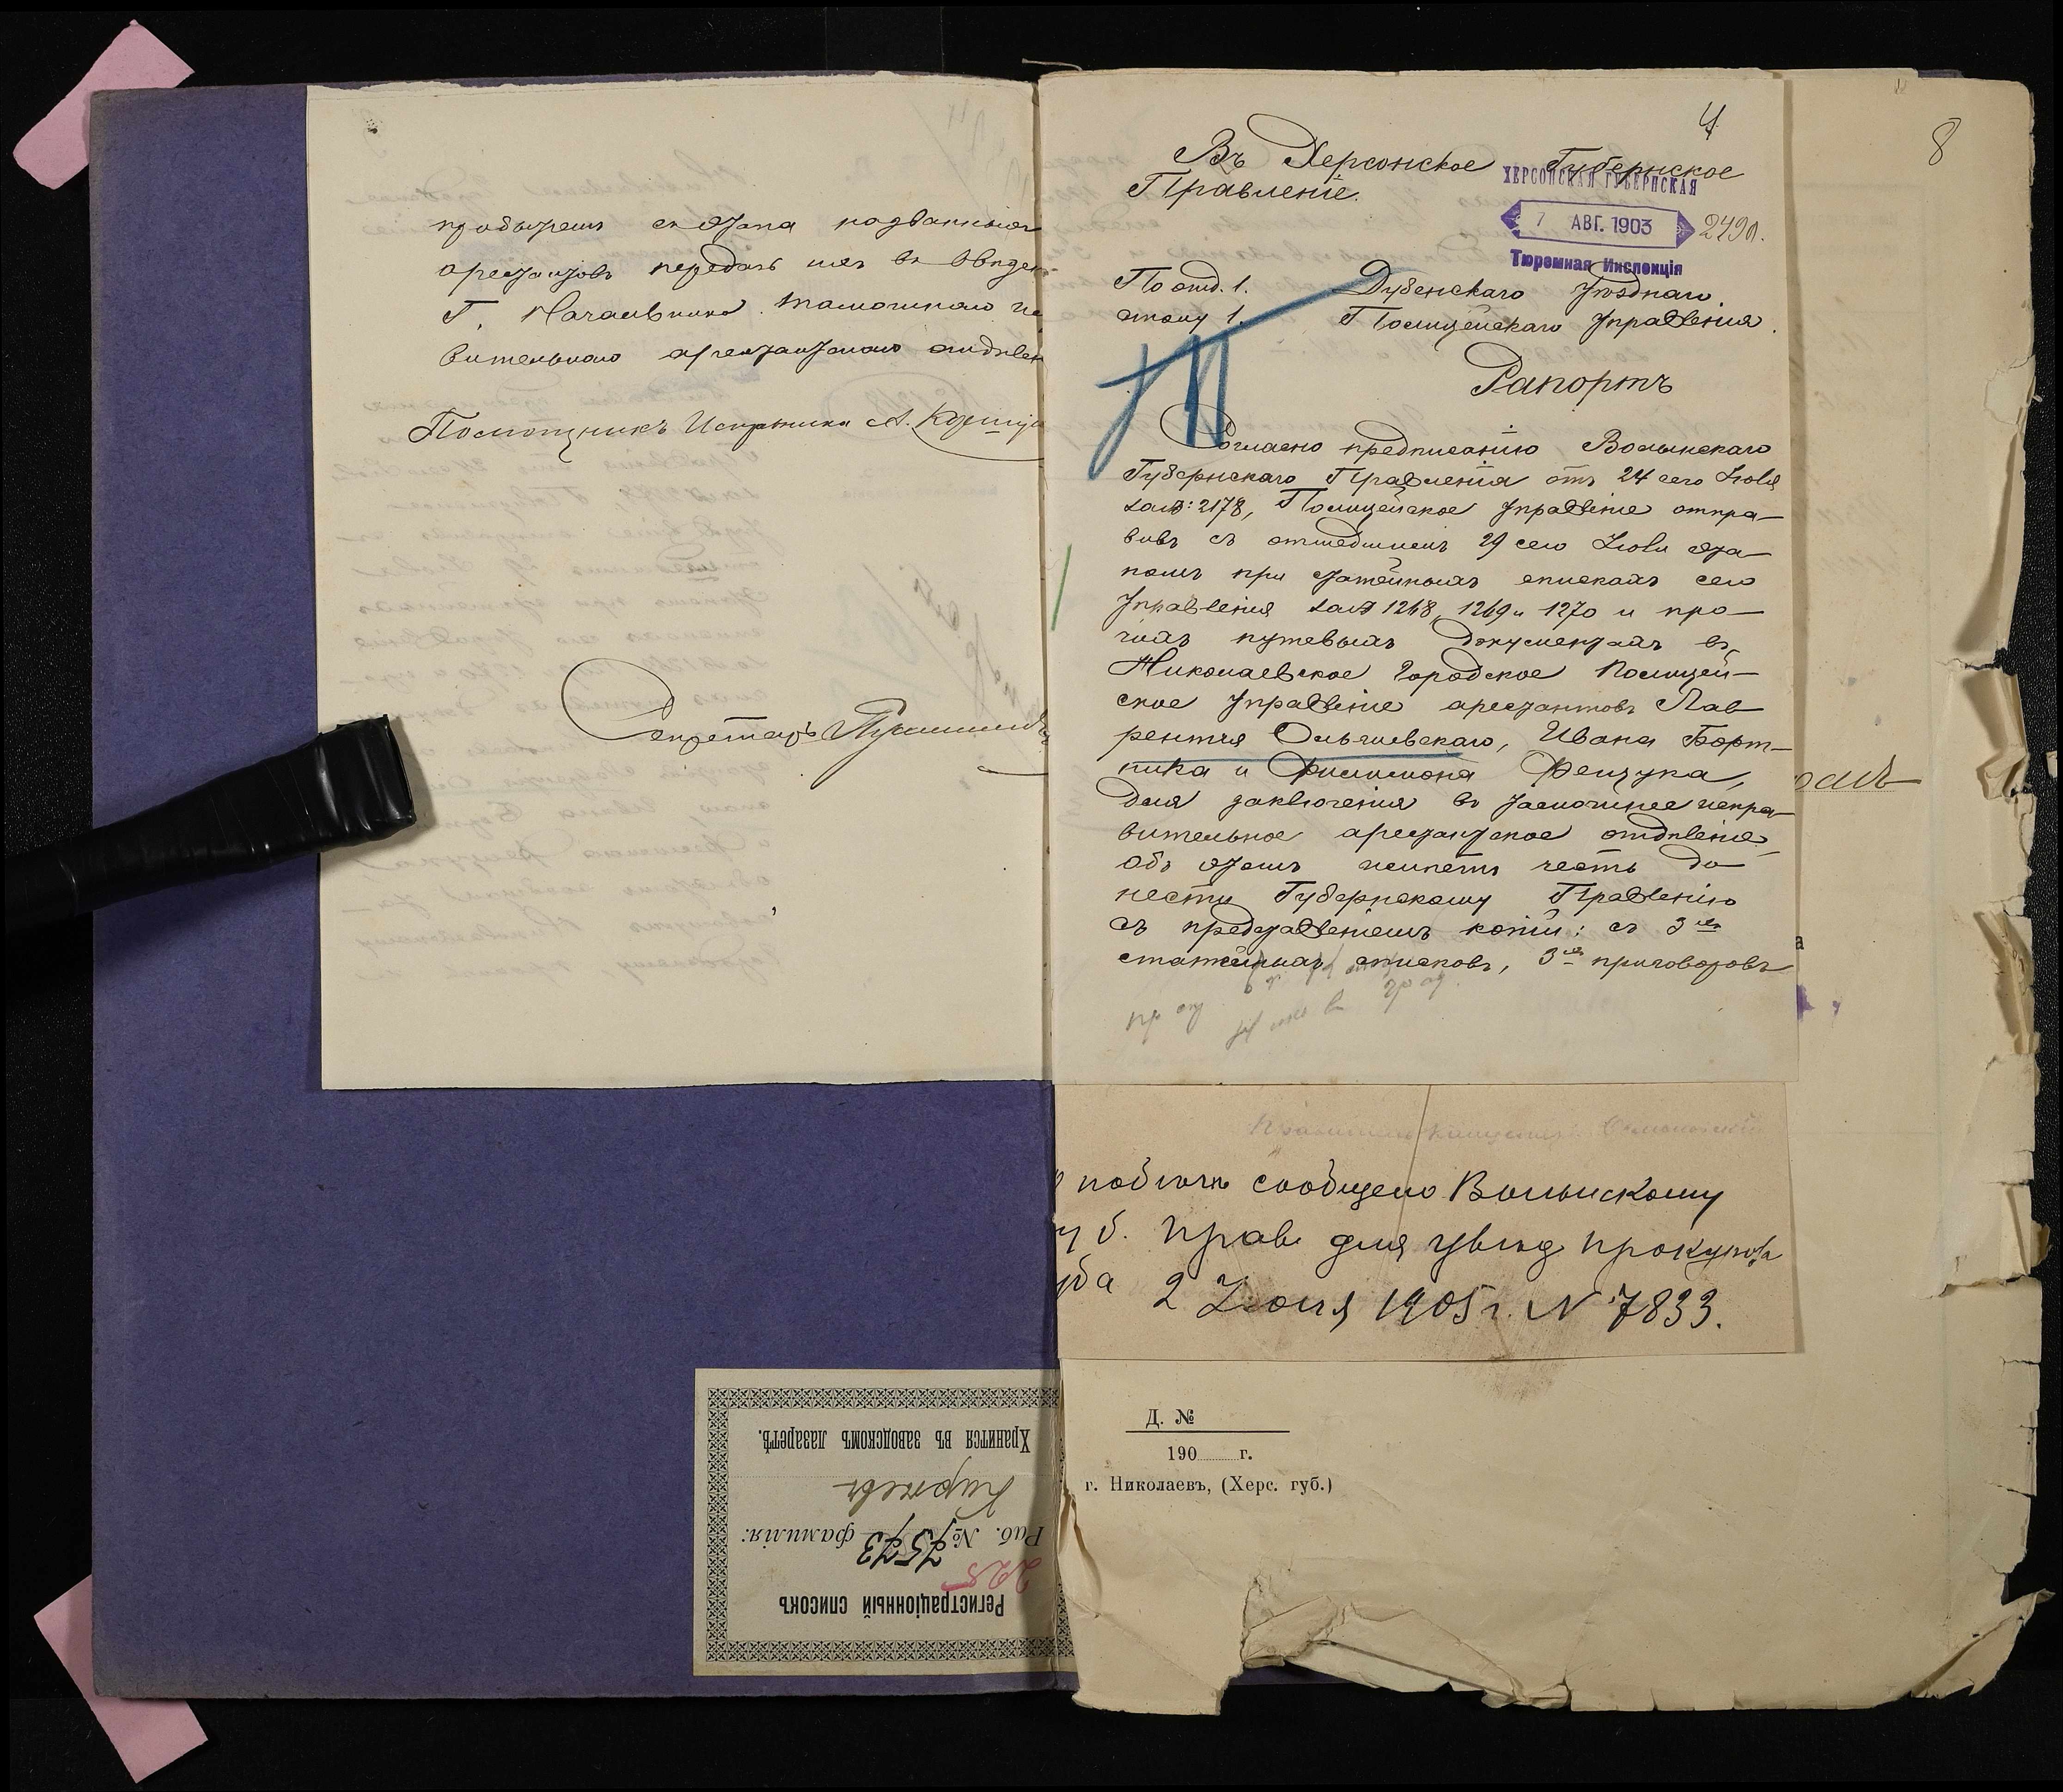 прибытiемъ съ этапа названныхъ
арестантовъ передать ихъ въ вѣдѣн
Г. Начальника тамошняго ис
вительнаго арестантскаго отдѣлен
Помощникъ Исправника А.
Секретарь
4
Въ Херсонское Губернское
Правленiе.
ХЕРСОНСКАЯ ГУБЕРНСКАЯ
7 АВГ. 1903
2490.
Тюремная Инспекцiя
По отд. 1.
столу 1.
Дубенскаго Уѣзднаго
Полицейскаго Управленiя.
Рапортъ
Согласно предписанiю Волынскаго
Губернскаго Правленiя отъ 24 сего Iюля
за №: 2178, Полицейское Управленiе отпра-
вивъ съ отшедшимъ 29 сего Iюля эта-
помъ при статейныхъ спискахъ сего
Управленiя за № 1268, 1269 и 1270 и про-
чихъ путевыхъ документахъ въ
Николаевское Городское Полицей-
ское Управленiе арестантовъ Лав
рентiя Ольшевскаго, Ивана Борт-
ника и Филимона Фещука,
для заключенiя въ тамошнее испра-
вительное арестантское отдѣленiе,
объ этомъ имѣетъ честь до-
нести Губернскому Правленiю
съ представленiемъ копiй: съ 3хъ
статейныхъ списковъ, 3хъ приговоровъ
8
а
сообщено Волынскому
уб. Прав для увѣд прокурора
2 Iюня 1905 г. N 7833.
Д. №
190 г.
г. Николаевъ, (Херс. губ.)
Регистрацiонный списокъ
225
Раб. № 7573 фамилiя:
Хранится въ заводскомъ лазаретѣ.